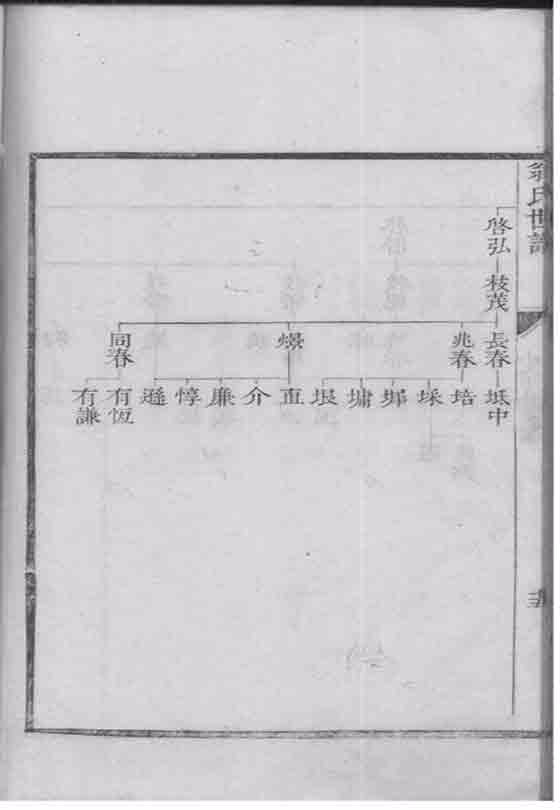 翁氏世譜
啓弘
枝茂
長春
坻中
兆春
培
埰
墉
垠
燝
直
介
廉
惇
遜
同春
有恆
有謙